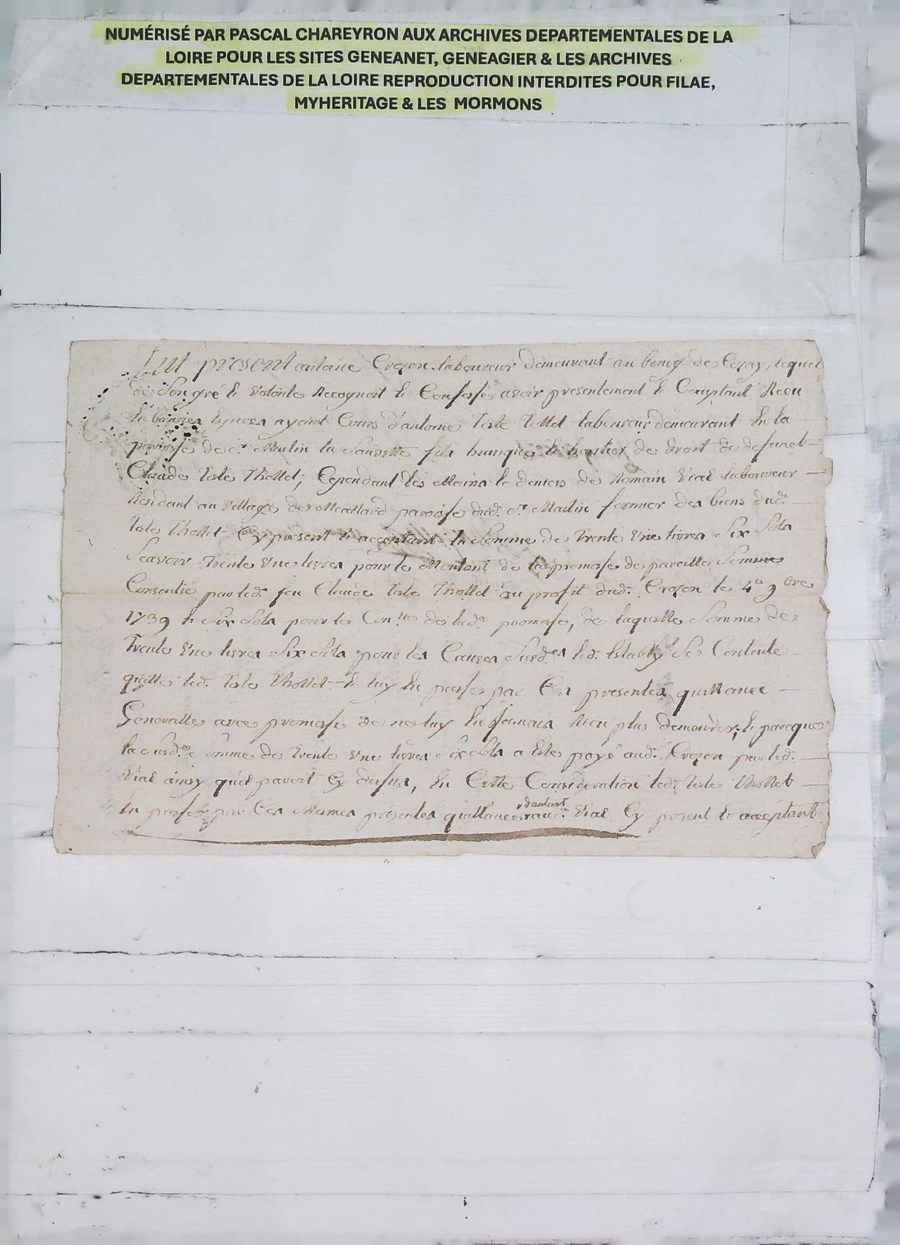 NUMÉRISÉ PAR PASCAL CHAREYRON AUX ARCHIVES DEPARTEMENTALES DE LA
LOIRE POUR LES SITES GENEANET, GENEAGIER & LES ARCHIVES
DEPARTEMENTALES DE LA LOIRE REPRODUCTION INTERDITES POUR FILAE,
MYHERITAGE & LES MORMONS
fut present antoine Crozon laboureur demeurant au bourg de lequel
de son gré et volonté Recognoit et Confesse avoir presentement et Comptant Receu
En ayant Cours d'antoine laboureur demeurant En la
de st. la fils heritier de droit de defunct
Claude Thollet, Cependant des Mains et deniers de Romain Vial laboureur
Residant au village de paroisse dud. st. fermier des biens dud.
Thollet Cy present et acceptant la somme de trente une livres six sols
scavoir trente une livres pour le Montant de la promesse de pareille somme
Consentie par led. feu Claude Thollet au profit dud. Crozon le 4e 9bre
1739 et six sols pour le de lad. promesse, de laquelle somme de
trente une livres six sols pour les Causes susd. led. se Contente
quitte led. Thollet et luy En passe par Ces presentes quittance
Generalle avec promesse de ne luy En jamais Rien plus demander, Et parceque
la susd. somme de trente une livres six sols a esté payé aud. Crozon par led.
Vial ainsy quel paroit Cy dessus, En Cette Consideration led. Thollet
En passe par Ces Mesmes presentes quittance d'autant aud. Vial Cy present et acceptant